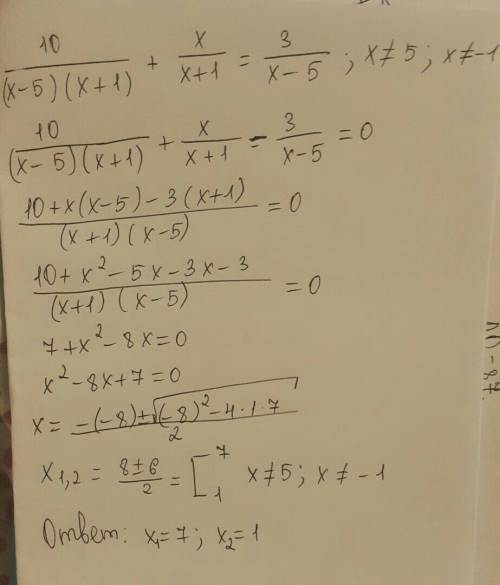 10/((x-5)(x+1)) + x/(x+1) = 3/(x-5) ; x≠5 ; x≠-1
10/((x-5)(x+1)) + x/(x+1) - 3/(x-5) = 0
(10+x(x-5)-3(x+1))/((x+1)(x-5)) = 0
(10+x²-5x-3x-3)/((x+1)(x-5)) = 0
7+x²-8x=0
x²-8x+7=0
x = (-(-8)±√((-8)²-4·1·7))/2
x₁,₂ = (8±6)/2 = [7 1 x≠5; x≠-1
Ответ: x₁=7; x₂=1